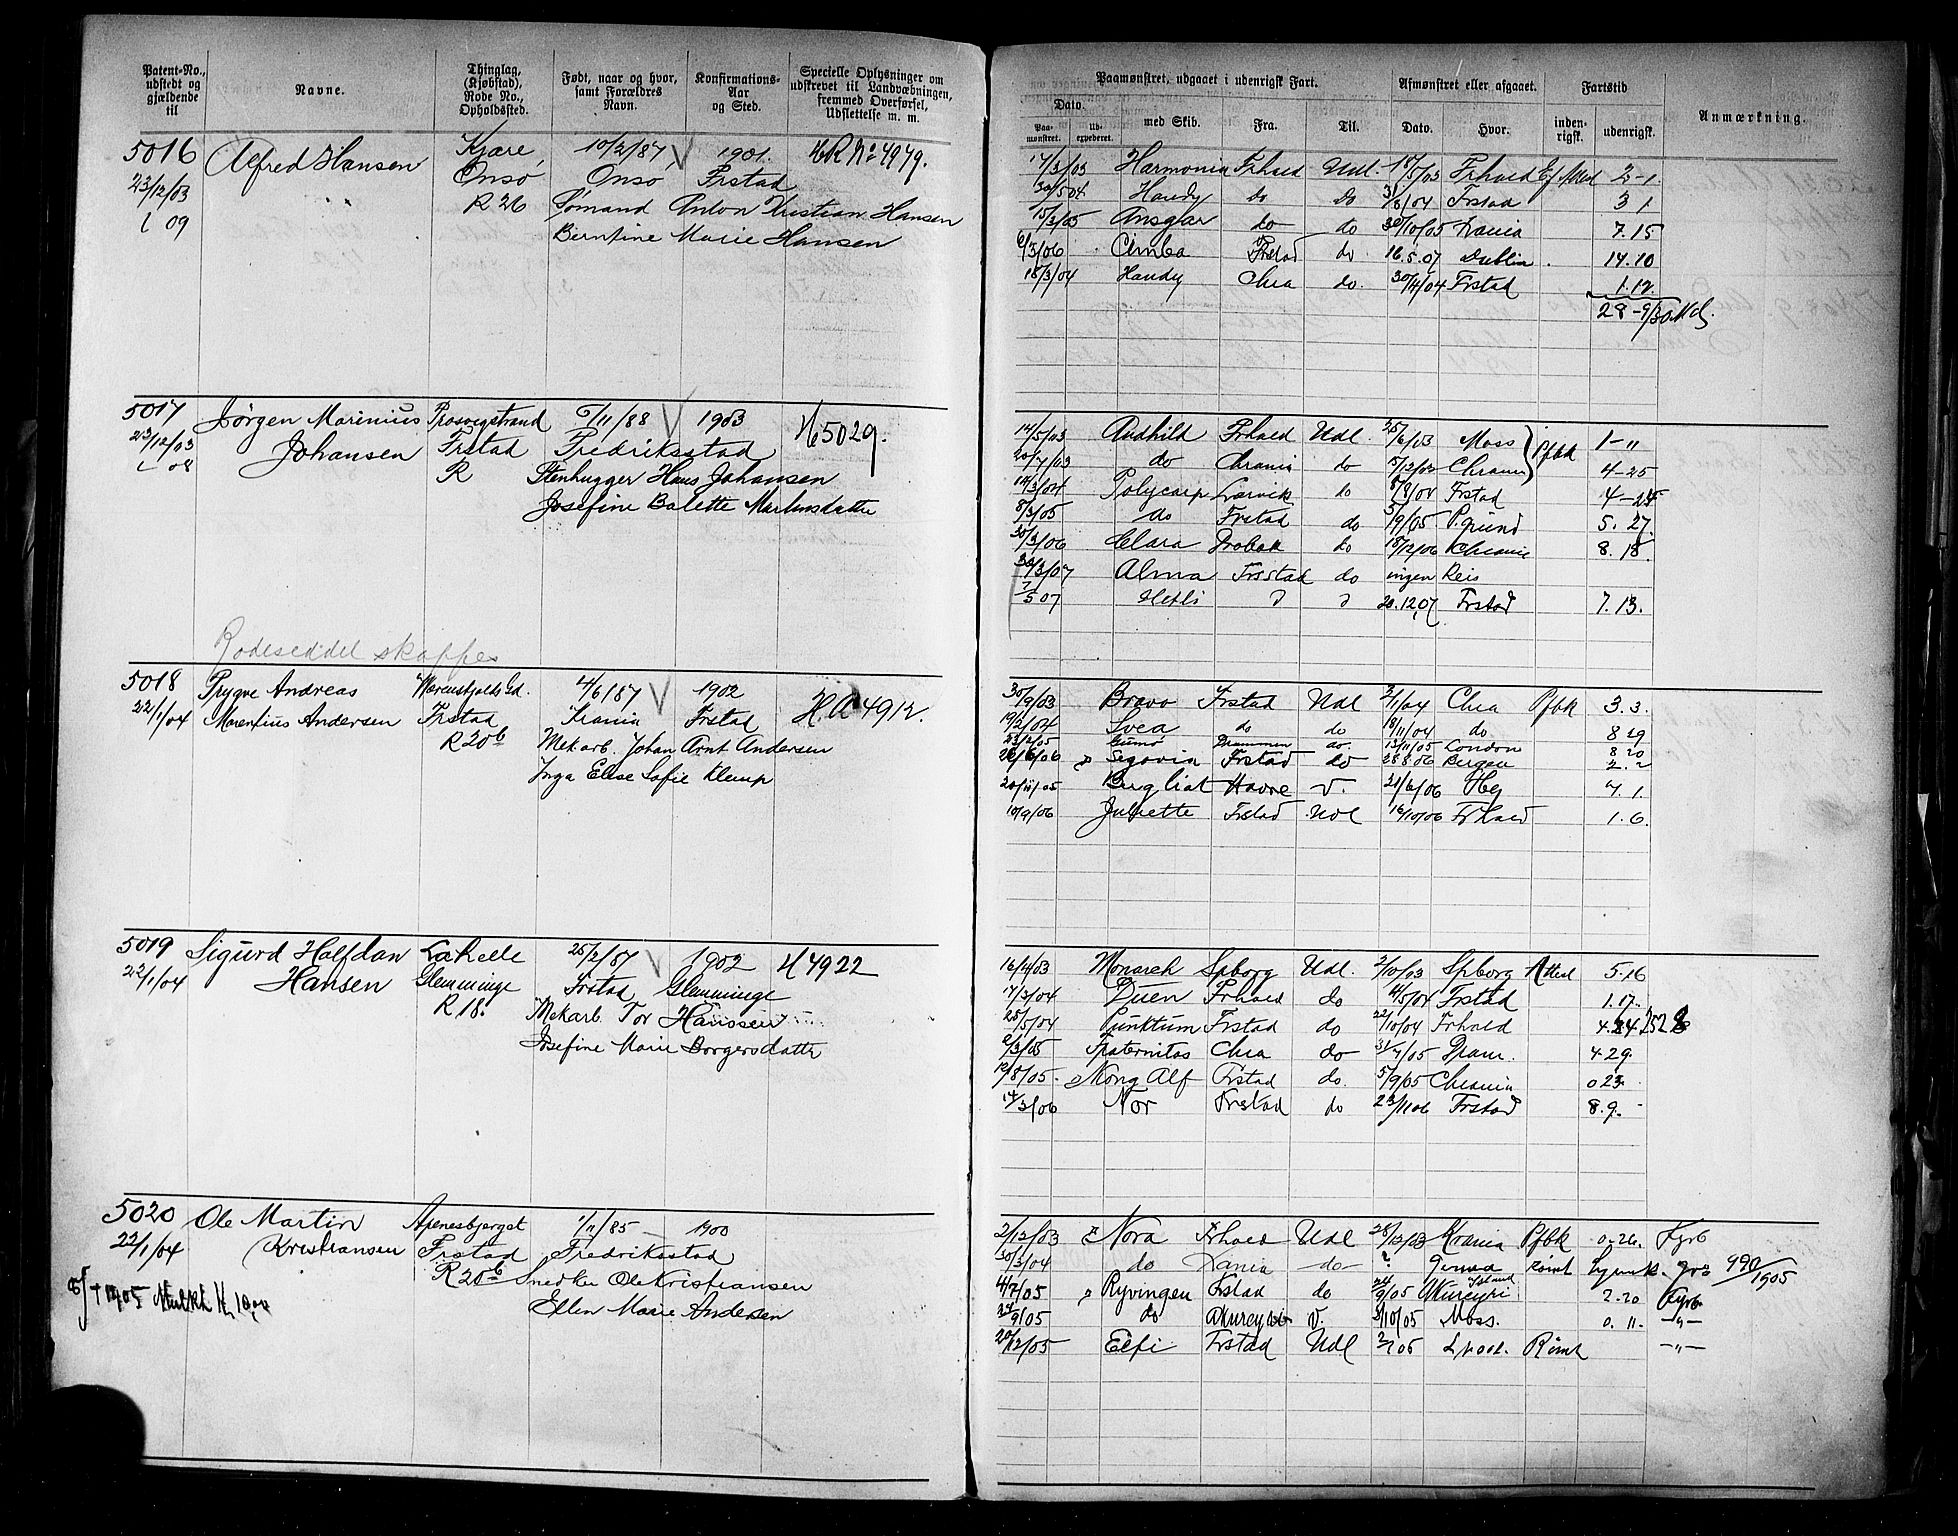 Patent-No., udstedt og gjældende til
Navne.
Thinglag, (Kjøbstad), Rode No., Opholdssted.
Født, naar og hvor, samt Forældres Navn.
Konfirmations-Aar og Sted.
Specielle Oplysninger om udskrevet til Landvæbningen, fremmed Overførsel, Udslettelse m. m.
Paamønstret, udgaaet i udenrigsk Fart.
Dato.
Paamønstret.
Udexpederet.
med Skib.
Fra.
Til.
Afmønstret eller afgaaet.
Dato.
Hvor.
Fartstid
indenrigsk.
udenrigsk.
Anmærkning.
5016 Alfred Hansen Kjære, 10/2/87 1901. No 4979.
23/12/03 Onsø Onsø Frstad
09 R 26 Sømand Anton Kristian Hansen
Berntine Marie Hansen
17/3/03 Harmonia Frhald Udl. 18/5/03 Frhald 2-1
Handy do do Frstad 3 1
15/3/05 Ansgar do do 30/10/05 Krania 7.15
6/3/06 Cimba Frstad do 16.5.07 Dublin 14.10
18/3/04 Handy Chra do. 30/4/04 Frstad 1.12.
28-9/30 Md.
5017 Jørgen Marinius 6/11/88 1903 5029.
23/12/03 Johansen Frstad Fredriksstad
08 R Stenhugger Hans Johansen
Josefine Balette Martinsdatter
14/5/03 Audhild Frhald Udl. 25/6/03 Moss Pfbk 1-"
20/7/03 do Chrania do Chrania 4-25
Polycarp Larvik do Frstad 4-25
8/3/05 do Frstad do P.grund 5. 27.
30/3/06 Clara Drobak do 18/12/06 Chrania 8. 18.
30/3/07 Alma Frsstad do ingen Reis
7/5 07 20.12.07 Frstad 7. 13.
Rodeseddel skaffes
5018 Trygve Andreas 4/6/87 1902 4912.
22/1/04 Marentius Andersen Frstad Krania Frstad
R 20 b Mek arb. Johan Arnt Andersen
Inga Elise Sofie Klemp
30/9/03 Bravo Frstad Udl 2/1/04 Chra Pfbk 3. 3.
19/2/04 Svea do do 18/11/04 do 8 29
23/2/05 Drammen do. 13/11/05 London 8 20
26/6/06 Segovia Frstad do 28 8 06 Bergen
20/11/05 Bergliot Havre v. 21/6/06 7. 1.
10/9/06 Juliette Frstad Udl 16/10/06 Frhald 1. 6.
5019 Sigurd Halfdan 25/2/87 1902 4922
22/1/04 Hansen Glemminge Frstad Glemminge
R 18. Mekarb. Tor Hanssen
Josefine Marie Borgersdatter
16/4/03 Monarch Spborg Udl. 2/10/03 Spborg Attest 5.16
17/3/04 Duen Frhald do 4/5/04 Frstad 1.17.
25/5/04 Punktum Frstad do 22/10/04 Frhald
2/3/05 Fraternitas Chra do Dram. 4.29.
12/8/05. Kong Alf Frstad do. 5/9/05 Chrania 0 23
14/3/06 Nor Frstad do Frstad 8.9.
5020 Ole Martin Apenesbjerget 1/11/85 1900
22/1/04 Kristiansen Frstad Fredriksstad
R 20 b Snedker Ole Kristiansen
Ellen Marie Andersen
2/12/03 Nora Frhald Udl 28/12/03 Krania Pfbk 0.26. Fyrb
30/3/04 do Krania do ? rømt 990/1905
4/7/05 Ryvingen Frstad do 24/9/05 Akureyri Island 2.20 Fyrb.
24/9/05 do Akureyri v. 3/10/05 Moss. 0. 11. -"-
Frstad Udl Rømt -"-